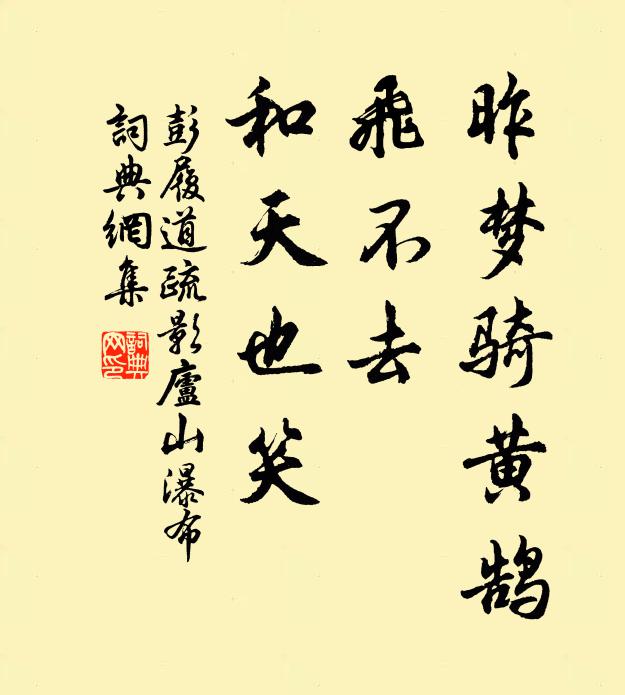 昨梦骑黄鹄
飞不去
和天也笑
彭履道疏影廬山瀑布
詞典網集
詞典网印